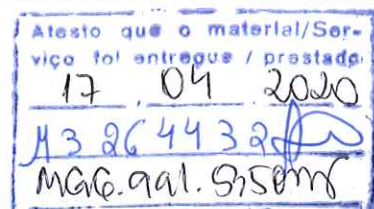 Atesto que o material/Ser-
viço foi entregue / prestado
17 04 2020
M3264432